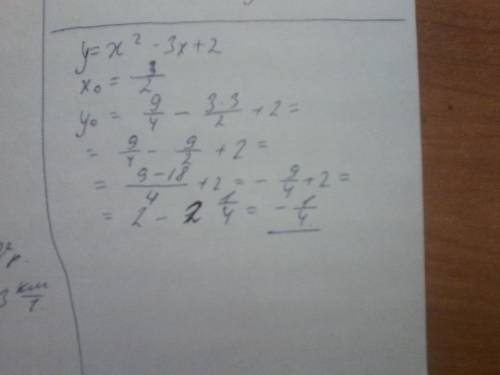 y = x² - 3x + 2
x₀ = 3/2
y₀ = 9/4 - 3·3/2 + 2 =
= 9/4 - 9/2 + 2 =
= 9-18/4 + 2 = - 9/4 + 2 =
= 2 - 2 1/4 = - 1/4
3 км/